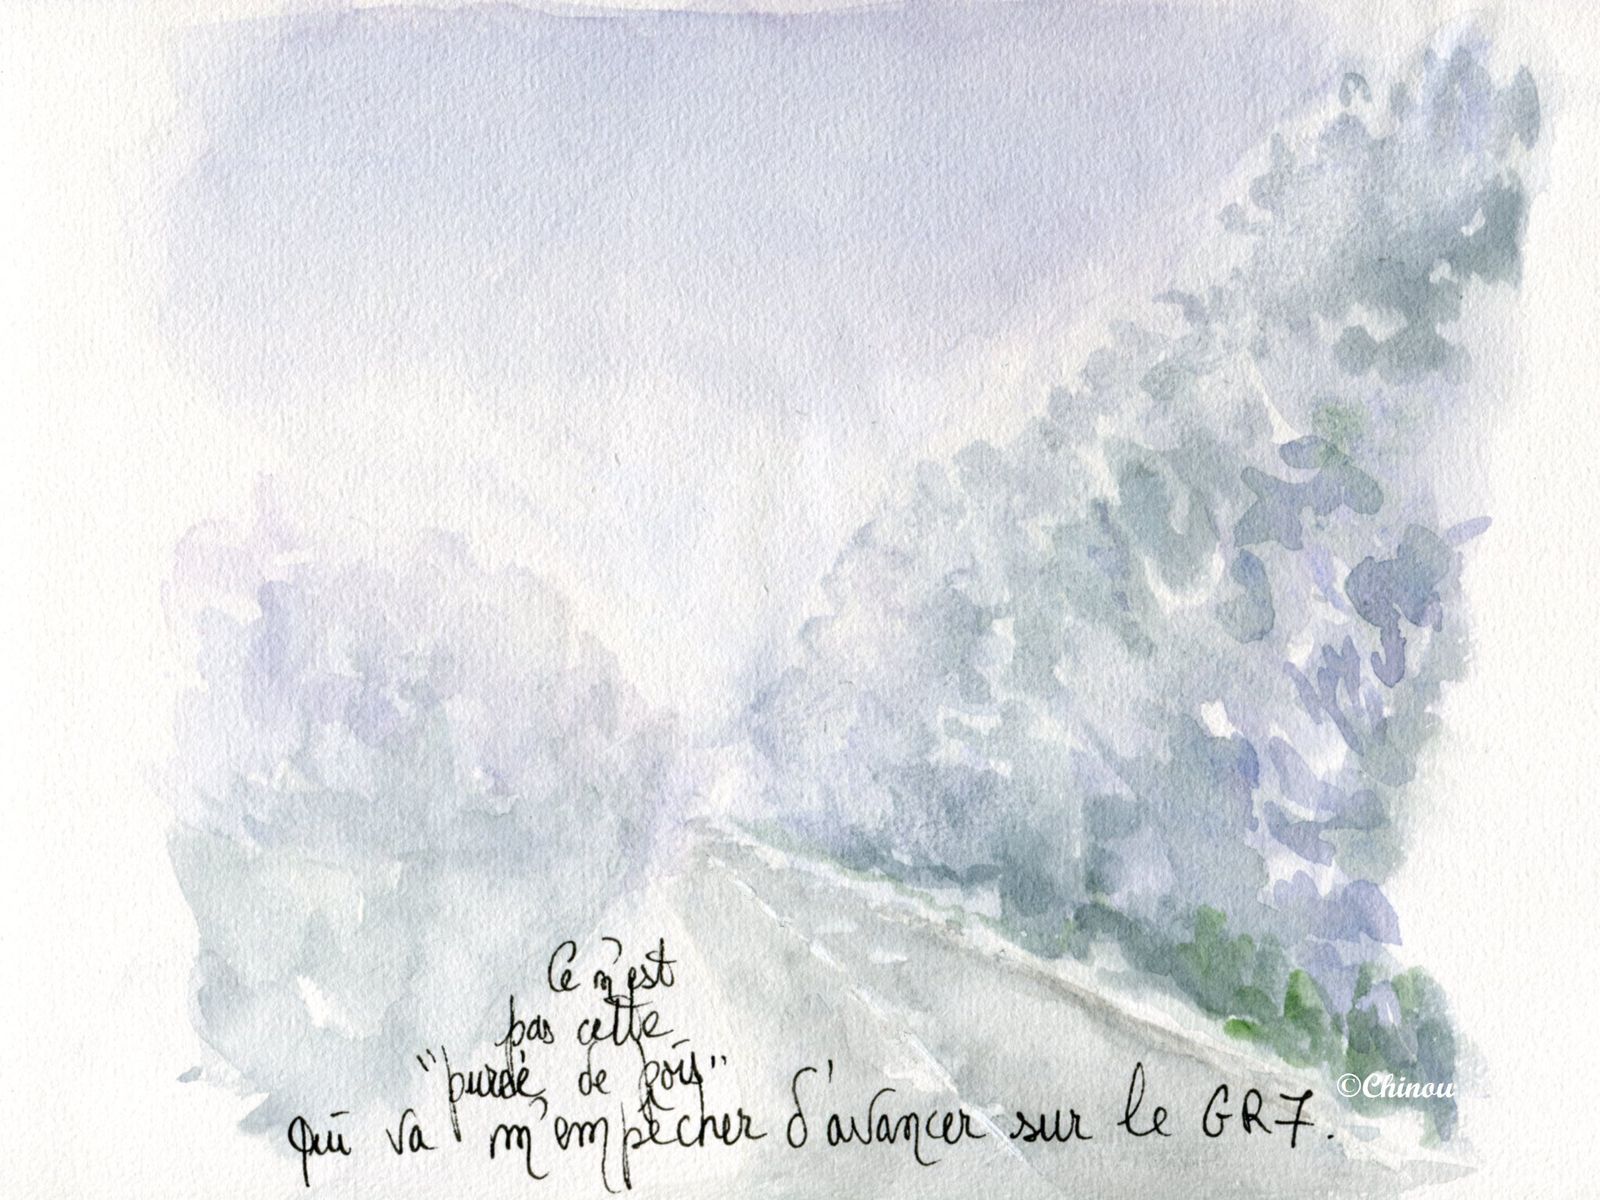 Ce n'est
pas cette
"purée de pois"
qui va m'empêcher d'avancer sur le GR7.
©Chinou